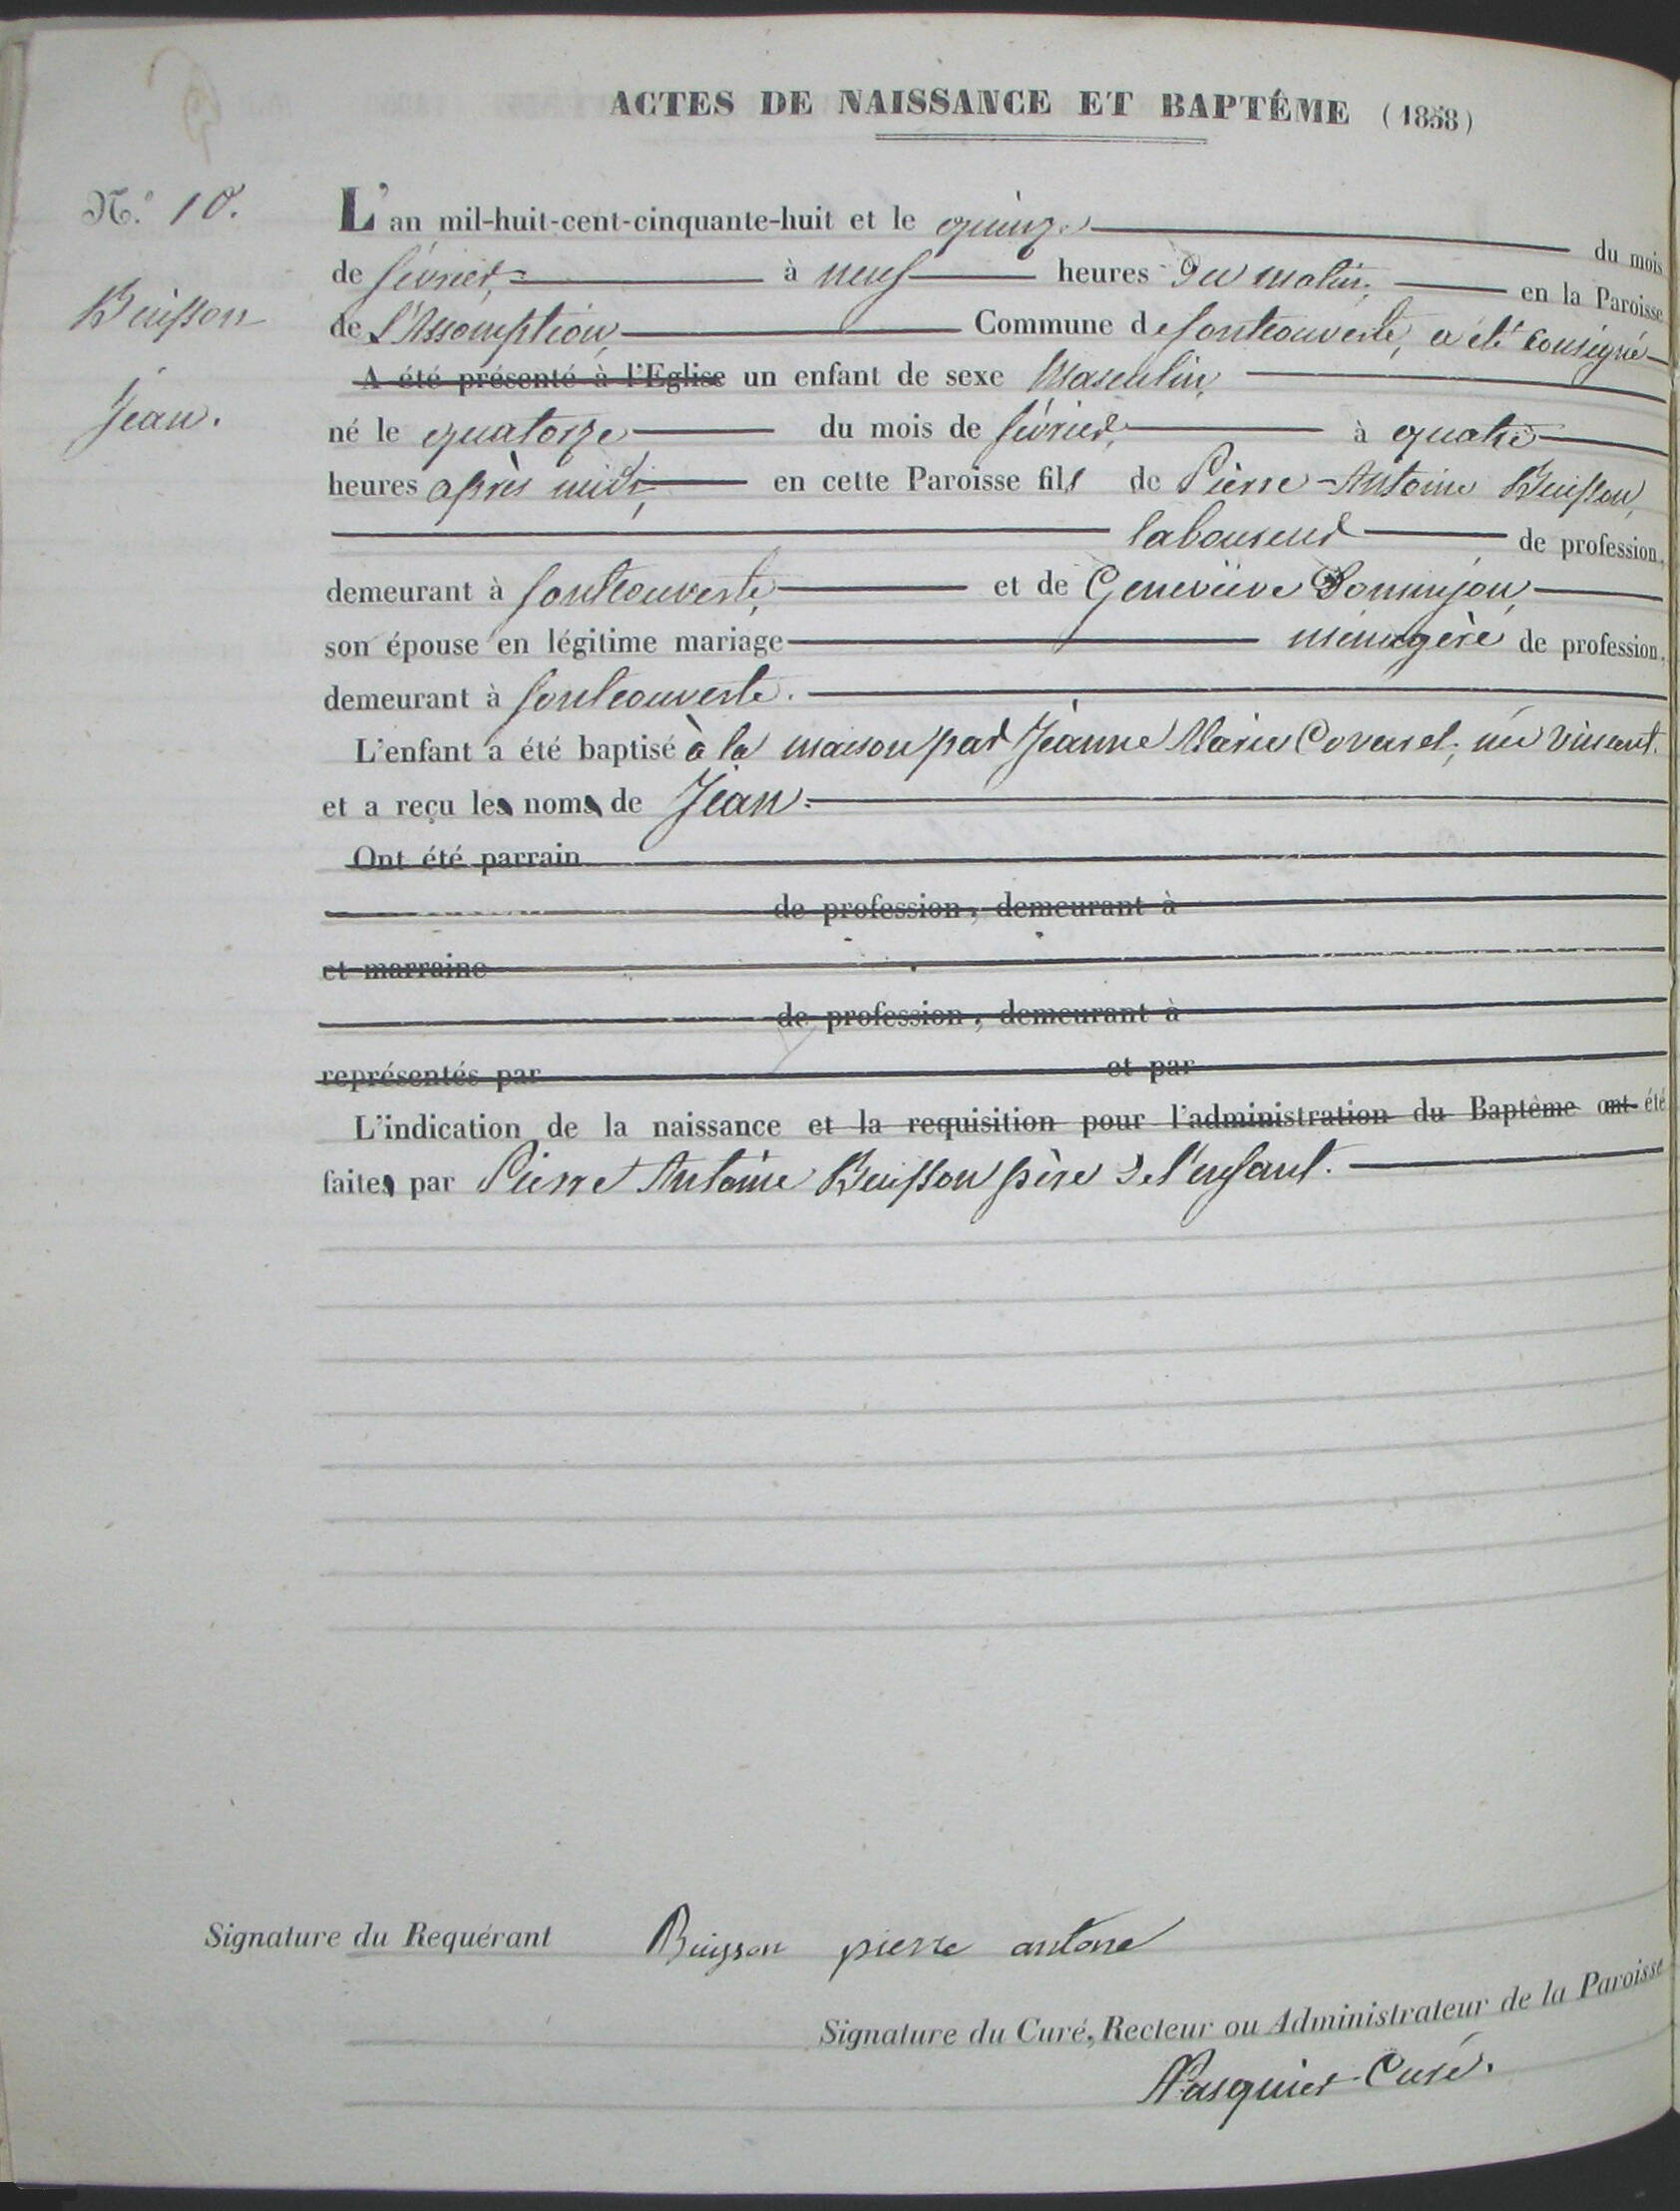 ACTES DE NAISSANCE ET BAPTÊME (1858)
N.° 10.
Buisson
Jean.
L'an mil-huit-cent-cinquante-huit et le quinze du mois
de février, à neuf heures du matin, en la Paroisse
de l'Assomption, Commune de fontcouverte, a été consigné
A été présenté à l'Eglise un enfant de sexe Masculin,
né le quatorze du mois de février, à quatre
heures après midi, en cette Paroisse fils de Pierre-Antoine Buisson,
laboureur de profession,
demeurant à fontcouverte, et de Geneviève Dominjon,
son épouse en légitime mariage ménagère de profession,
demeurant à fontcouverte.
L'enfant a été baptisé à la maison par Jeanne Marie née Vincent.
et a reçu les noms de Jean.
Ont été parrain
de profession, demeurant à
et marraine
de profession, demeurant à
représentés par et par
L'indication de la naissance et la requisition pour l'administration du Baptème ont été
faites par Pierre Antoine Buisson père de l'enfant.
Signature du Requérant Buisson pierre antone
Signature du Curé, Recteur ou Administrateur de la Paroisse
Pasquier Curé.